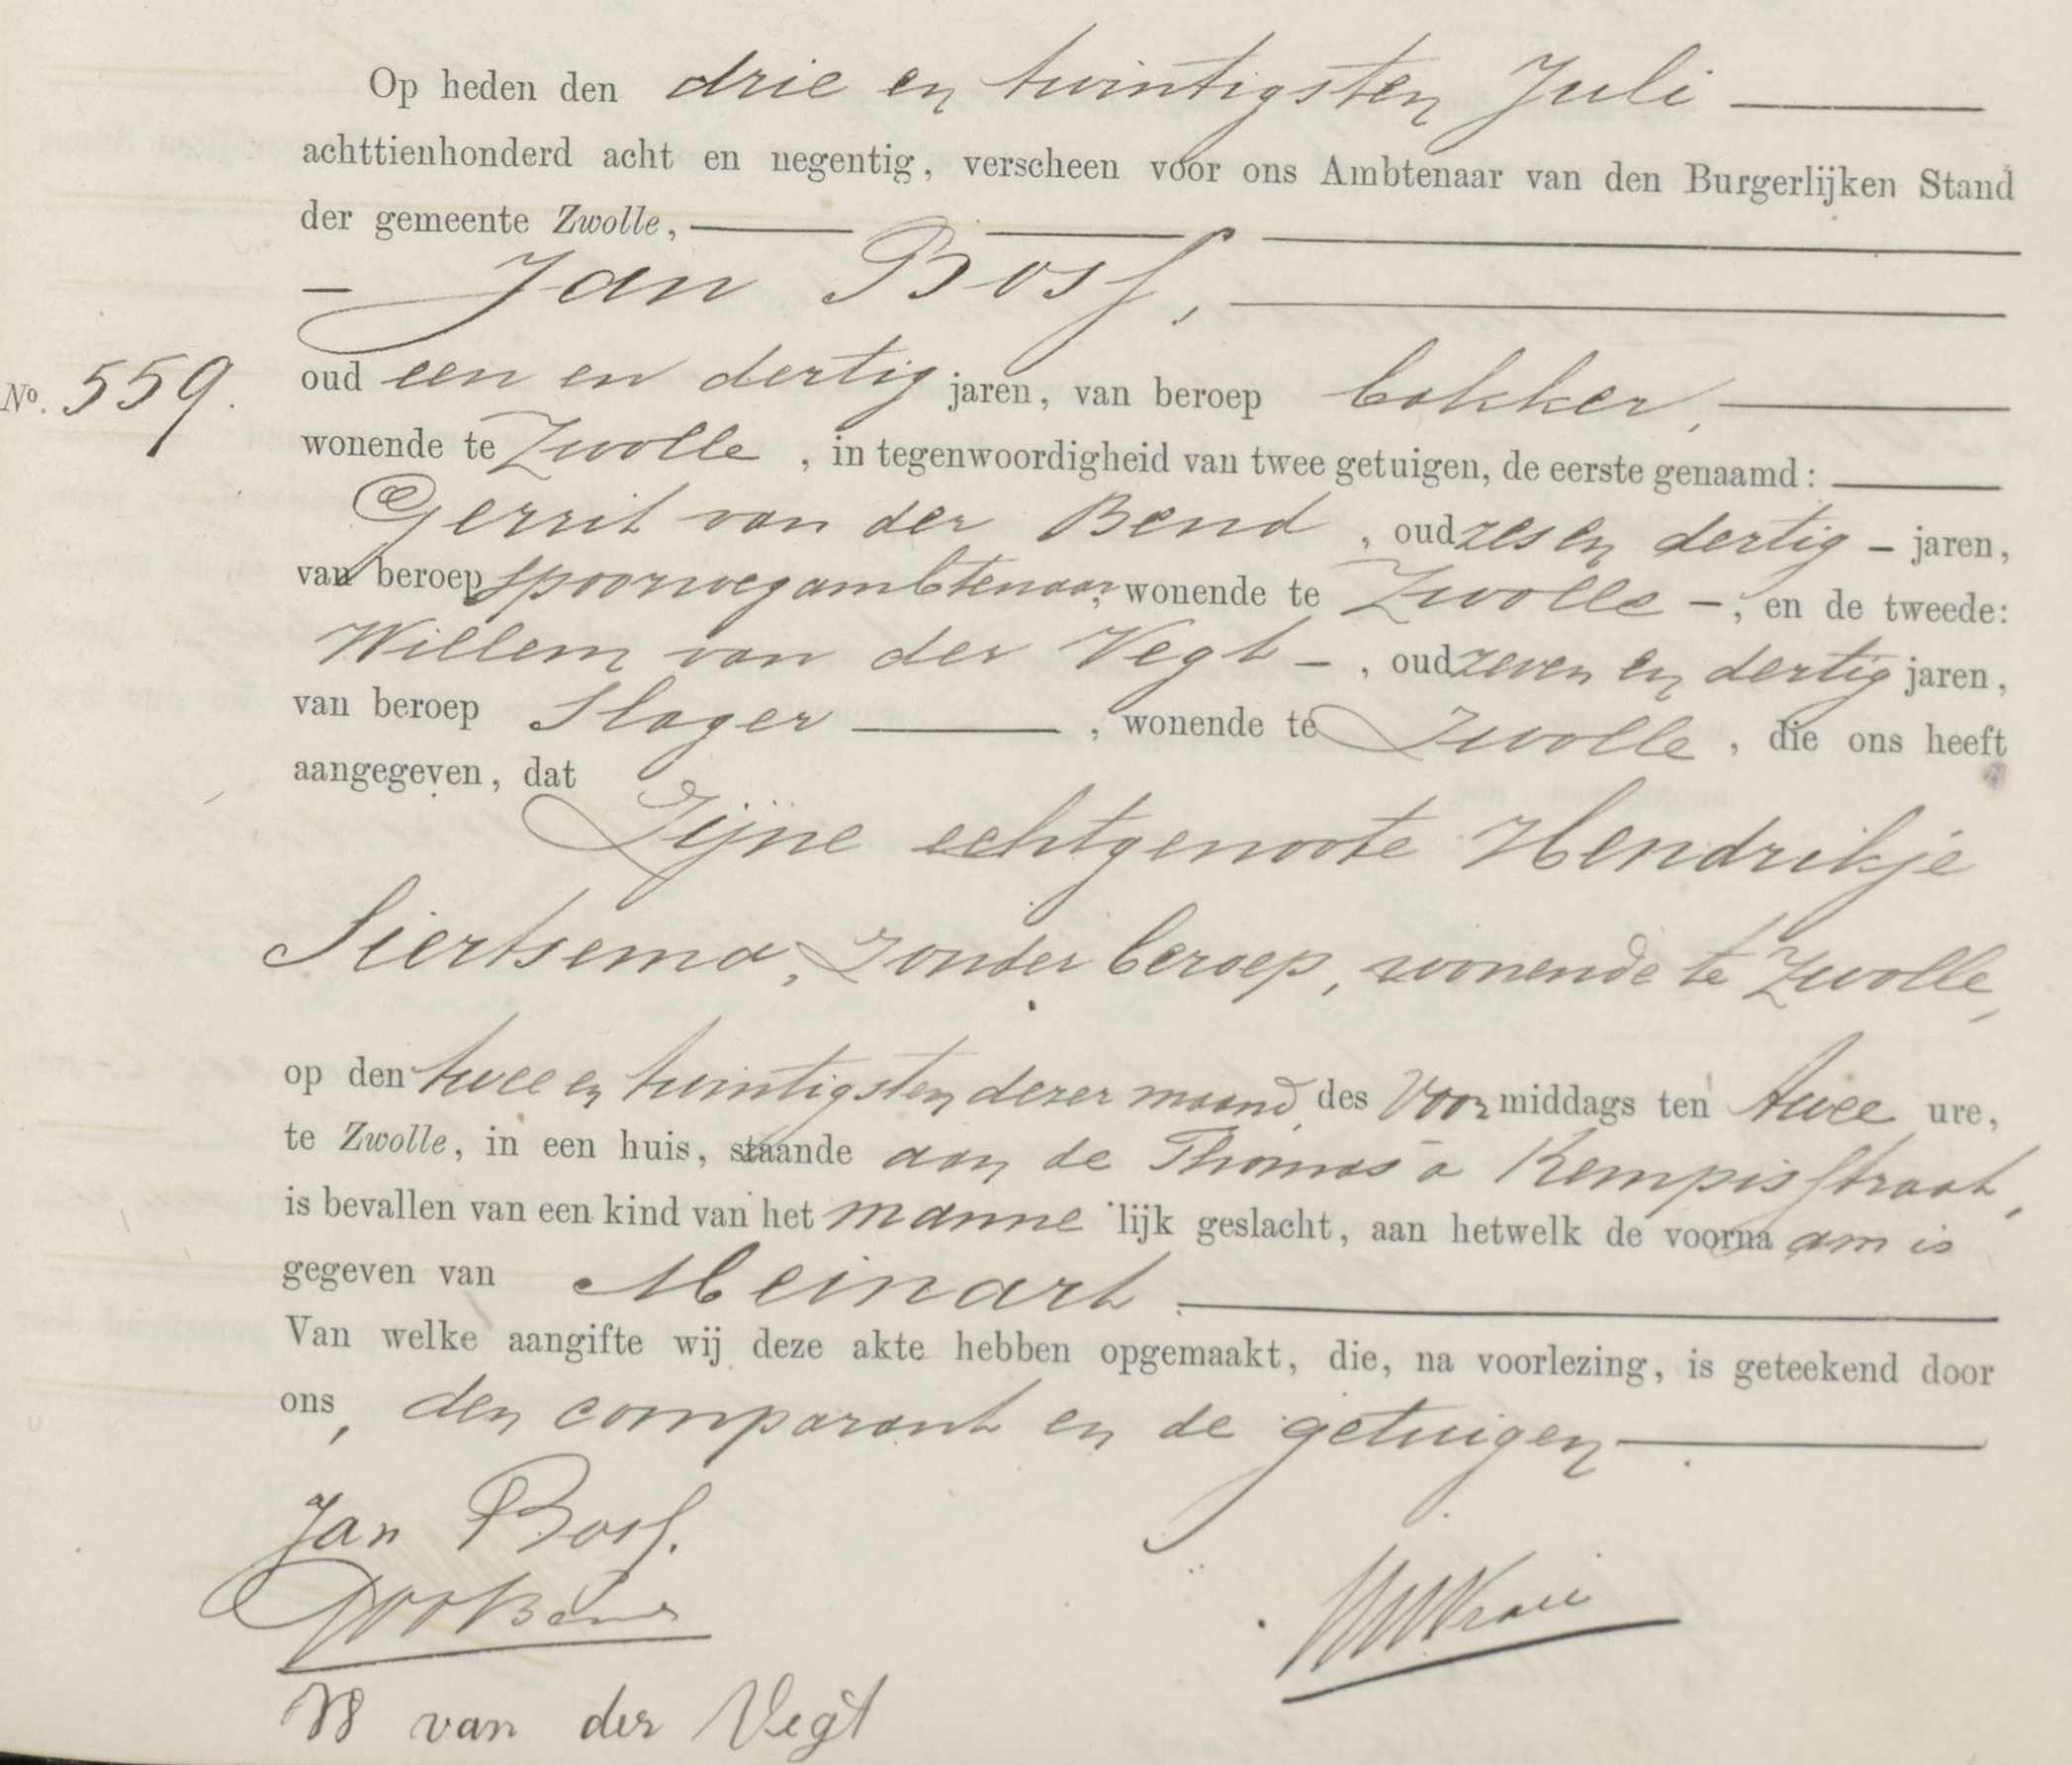 Op heden den drie en twintigsten Juli
achttienhonderd acht en negentig, verscheen voor ons Ambtenaar van den Burgerlijken Stand
der gemeente Zwolle,
Jan Bos,
No. 559.
oud een en dertig jaren, van beroep bakker,
wonende te Zwolle, in tegenwoordigheid van twee getuigen, de eerste genaamd:
Gerrit van der Bend, oud zes en dertig - jaren,
van beroep spoorwegambtenaar, wonende te Zwolle -, en de tweede:
Willem van der Vegt -, oud zeven en dertig jaren,
van beroep Slager, wonende te Zwolle, die ons heeft
aangegeven, dat
Zijne echtgenoote Hendrikje
Siertsema, zonder beroep, wonende te Zwolle,
op den twee en twintigsten dezer maand, des Voormiddags ten twee ure,
te Zwolle, in een huis, staande aan de Thomas a Kempisstraat,
is bevallen van een kind van het mannelijk geslacht, aan hetwelk de voornaam is
gegeven van Meinart
Van welke aangifte wij deze akte hebben opgemaakt, die, na voorlezing, is geteekend door
ons, den comparant en de getuigen
Jan Bos.
W van der Vegt